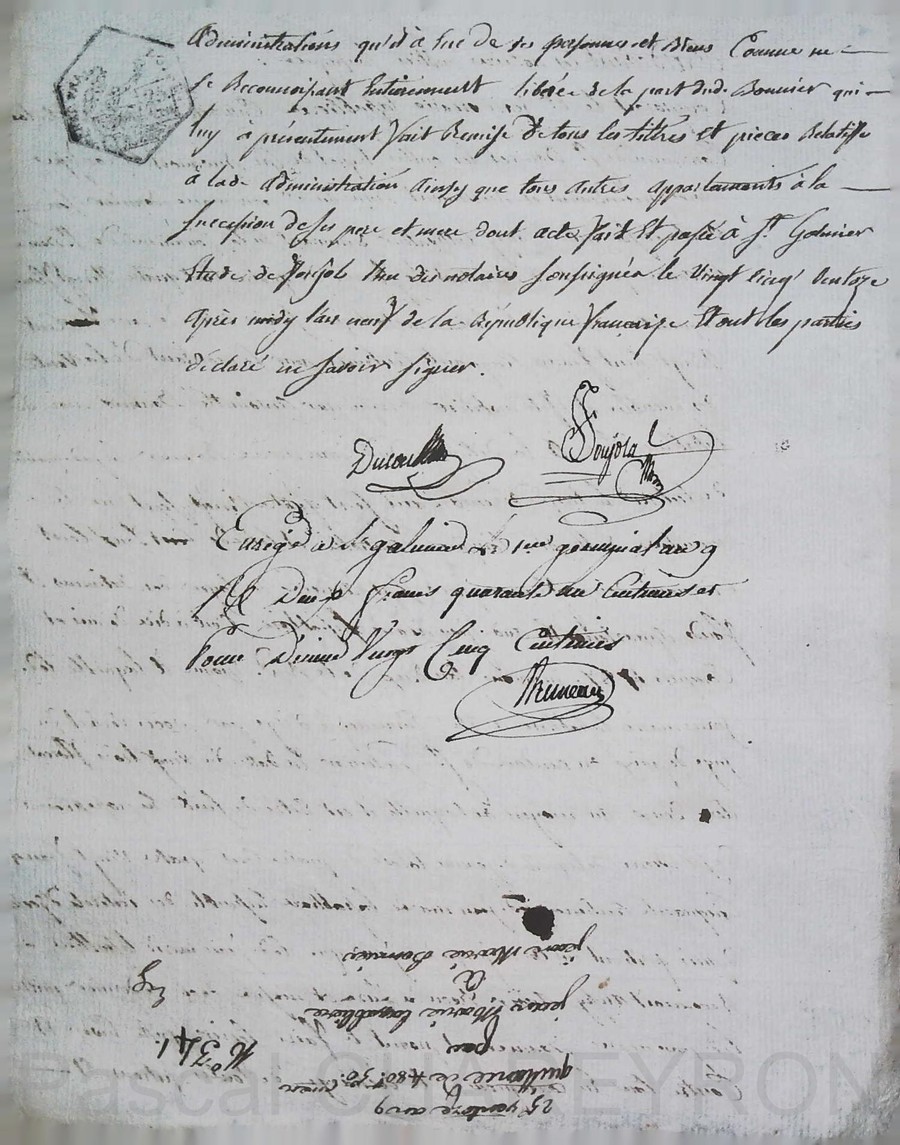 Administrations qu'il à eue de ses personnes et Biens Comme ne
se Reconnoissant Entierement liberée de la part dud. Bonnier qui
luy à présentement fait Remise de tous les titres et pieces Relatifs
à lade. administration ainsy que tous autres appartenants à la
succession de ses pere et mere dont acte fait Et passé à St. Galmier
Etude de Poujols l'un des notaires soussignés le vingt cinq Ventoze
après midy l'an neuf de la République française Et ont les parties
déclaré ne savoir signer.
Poujola
Enregé a St galmier le 1er germinal an 9
RC Deux francs quarante un Centimes et
Pour Dixme Vingt Cinq Centimes
Bruneau
25 ventoze an 9
quittance de 480.f 50.c
par
jean Marie
à
jean Marie Bonnier
No 341
Exg
Pascal CHAREYRON